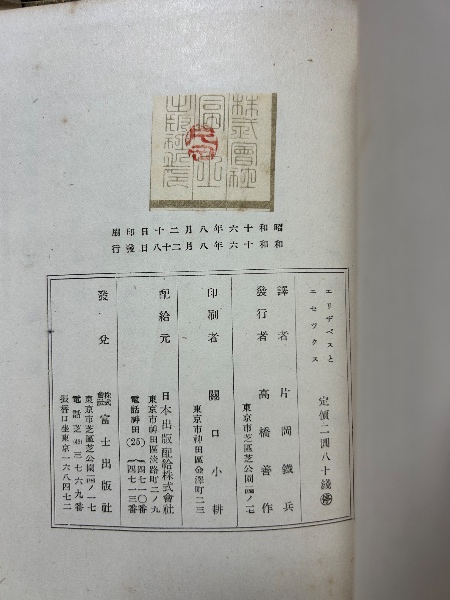 株式會社
富士
昭和十六年八月二十日印刷
昭和十六年八月二十八日發行
エリザベスと
エセックス
定價二圓八十錢 ㊝
譯者 片岡鐵兵
發行者 高橋善作
東京市芝區芝公園四ノ一七
印刷者 關口小耕
東京市神田區金澤町二三
配給元 日本出版配給株式會社
東京市神田區淡路町二ノ九
電話神田(25)
四七一〇番
四七一三番
發兌 株式會社 富士出版社
東京市芝區芝公園四ノ一七
電話芝(43)三七六九番
振替口坐東京一六八四七二